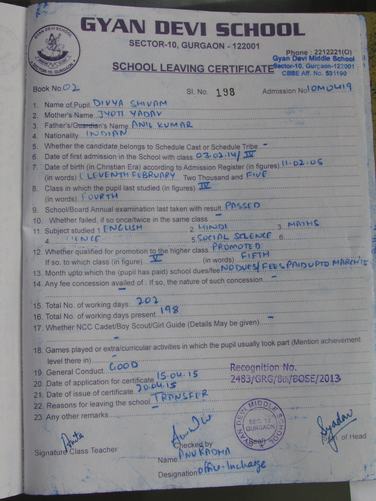 GYAN DEVI SCHOOL
SECTOR-10, GURGAON - 122001
Phone : 2212221(O)
Gyan Devi Middle School
Sector-10, Gurgaon-122001
CBSE Aff. No. 531190
SCHOOL LEAVING CERTIFICATE
Book No. 02 Sl. No. 198 Admission No
1. Name of Pupil DIVYA SHIVAM
2. Mother's Name JYOTI YADAV
3. Father's/Guardian's Name ANIL KUMAR
4. Nationality INDIAN
5. Whether the candidate belongs to Schedule Cast or Schedule Tribe -
6. Date of first admission in the School with class 03.02.14/IV
7. Date of birth (in Christian Era) according to Admission Register (in figures) 11.02.05
(in words) ELEVENTH FEBRUARY Two Thousand and FIVE
8. Class in which the pupil last studied (in figures) IV
(in words) FOURTH
9. School/Board Annual examination last taken with result PASSED
10. Whether failed, if so once/twice in the same class -
11. Subject studied 1 ENGLISH 2. HINDI 3. MATHS
4. 5 SOCIAL SCIENCE 6.
12. Whether qualified for promotion to the higher class PROMOTED
If so, to which class (in figure) V (in words) FIFTH
13. Month upto which the (pupil has paid) school dues/fee NO DUES/FEES PAID UPTO MARCH'15
14. Any fee concession availed of : If so, the nature of such concession -
15. Total No. of working days 202
16. Total No. of working days present 198
17. Whether NCC Cadet/Boy Scout/Girl Guide (Details May be given) -
18. Games played or extra/curricular activities in which the pupil usually took part (Mention achievement
level there in) -
19. General Conduct GOOD
20. Date of application for certificate 15.04.15
21. Date of issue of certificate 20.04.15
22. Reasons for leaving the school TRANSFER
23. Any other remarks -
Recognition No.
2483/GRG/Bn/BOSE/2013
GYAN DEVI MIDDLE SCHOOL
SEC. 10
GURGAON
Anita
Signature Class Teacher
Checked by
(Seal)
of Head
Name ANURADHA
Designation Office-Incharge